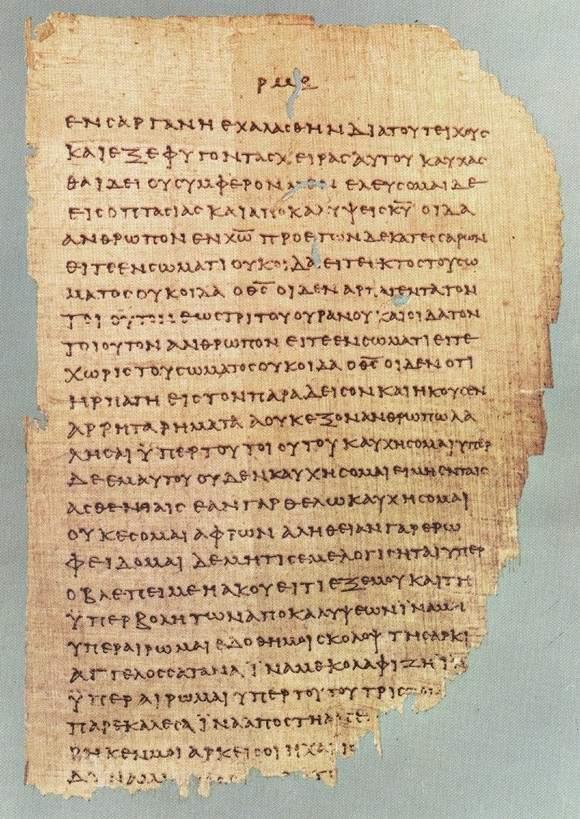 ΡΜΕ
ΕΝϹΑΡΓΑΝΗΕΧΑΛΑϹΘΗΝΔΙΑΤΟΥΤΕΙΧΟΥϹ
ΚΑΙΕΞΕΦΥΓΟΝΤΑϹΧΕΙΡΑϹΑΥΤΟΥΚΑΥΧΑϹ
ΘΑΙΔΕΙΟΥϹΥΜΦΕΡΟΝΜΕΝΕΛΕΥϹΟΜΑΙΔΕ
ΕΙϹΟΠΤΑϹΙΑϹΚΑΙΑΠΟΚΑΛΥΨΕΙϹΚ̅Υ̅ΟΙΔΑ
ΑΝΘΡΩΠΟΝΕΝΧ̅Ω̅ΠΡΟΕΤΩΝΔΕΚΑΤΕϹϹΑΡΩΝ
ΕΙΤΕΕΝϹΩΜΑΤΙΟΥΚΟΙΔΑΕΙΤΕΕΚΤΟϹΤΟΥϹΩ
ΜΑΤΟϹΟΥΚΟΙΔΑΟΘ̅Ϲ̅ΟΙΔΕΝΑΡΠΑΓΕΝΤΑΤΟΝ
ΤΟΙΟΥΤΟΝΕΩϹΤΡΙΤΟΥΟΥΡΑΝΟΥΚΑΙΟΙΔΑΤΟΝ
ΤΟΙΟΥΤΟΝΑΝΘΡΩΠΟΝΕΙΤΕΕΝϹΩΜΑΤΙΕΙΤΕ
ΧΩΡΙϹΤΟΥϹΩΜΑΤΟϹΟΥΚΟΙΔΑΟΘ̅Ϲ̅ΟΙΔΕΝΟΤΙ
ΗΡΠΑΓΗΕΙϹΤΟΝΠΑΡΑΔΕΙϹΟΝΚΑΙΗΚΟΥϹΕΝ
ΑΡΡΗΤΑΡΗΜΑΤΑΑΟΥΚΕΞΟΝΑΝΘΡΩΠΩΛΑ
ΛΗϹΑΙΫΠΕΡΤΟΥΤΟΙΟΥΤΟΥΚΑΥΧΗϹΟΜΑΙΥΠΕΡ
ΔΕΕΜΑΥΤΟΥΟΥΔΕΝΚΑΥΧΗϹΟΜΑΙΕΙΜΗΕΝΤΑΙϹ
ΑϹΘΕΝΕΙΑΙϹΕΑΝΓΑΡΘΕΛΩΚΑΥΧΗϹΟΜΑΙ
ΟΥΚΕϹΟΜΑΙΑΦΡΩΝΑΛΗΘΕΙΑΝΓΑΡΕΡΩ
ΦΕΙΔΟΜΑΙΔΕΜΗΤΙϹΕΜΕΛΟΓΙϹΗΤΑΙΥΠΕΡ
ΟΒΛΕΠΕΙΜΕΗΑΚΟΥΕΙΤΙΕΞΕΜΟΥΚΑΙΤΗ
ΫΠΕΡΒΟΛΗΤΩΝΑΠΟΚΑΛΥΨΕΩΝΪΝΑΜΗ
ΥΠΕΡΑΙΡΩΜΑΙΕΔΟΘΗΜΟΙϹΚΟΛΟΨΤΗϹΑΡΚΙ
ΑΓΓΕΛΟϹϹΑΤΑΝΑΪΝΑΜΕΚΟΛΑΦΙΖΗΪΝΑ
ΫΠΕΡΑΙΡΩΜΑΙΥΠΕΡΤΟΥΤΟΥΤΡΙϹ
ΠΑΡΕΚΑΛΕϹΑΪΝΑΑΠΟϹΤΗΑΠ
ΡΗΚΕΝΜΟΙΑΡΚΕΙϹΟΙΗΧΑΡΙϹ
ΔΥΝΑΜΙ